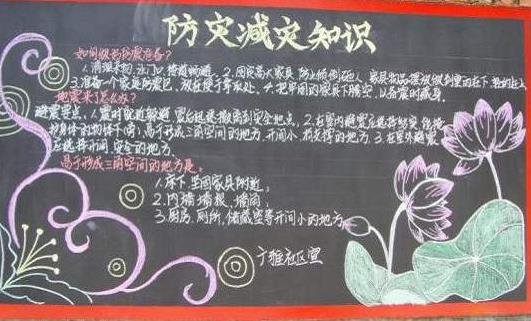 防灾减灾知识
如何做好防震准备?
1.清理杂物,让门口、楼道畅通。2.固定高大家具,防止倾倒砸人,家具物品摆放做到重的在下,轻的在上
3.准备一个家庭防震包,放在便于拿取处。4.把牢固的家具下腾空,以备震时藏身。
地震来了怎么办?
避震要点:1.震时就近躲避,震后迅速撤离到安全地点。2.在室内避震应选择结实、能掩
护身体的物体下(旁),易于形成三角空间的地方,开间小,有支撑的地方。3.在室外避震
应选择开阔、安全的地方。
易于形成三角空间的地方是:
1.床下、坚固家具附近;
2.内墙墙根、墙角;
3.厨房、厕所、储藏室等开间小的地方。
社区宣